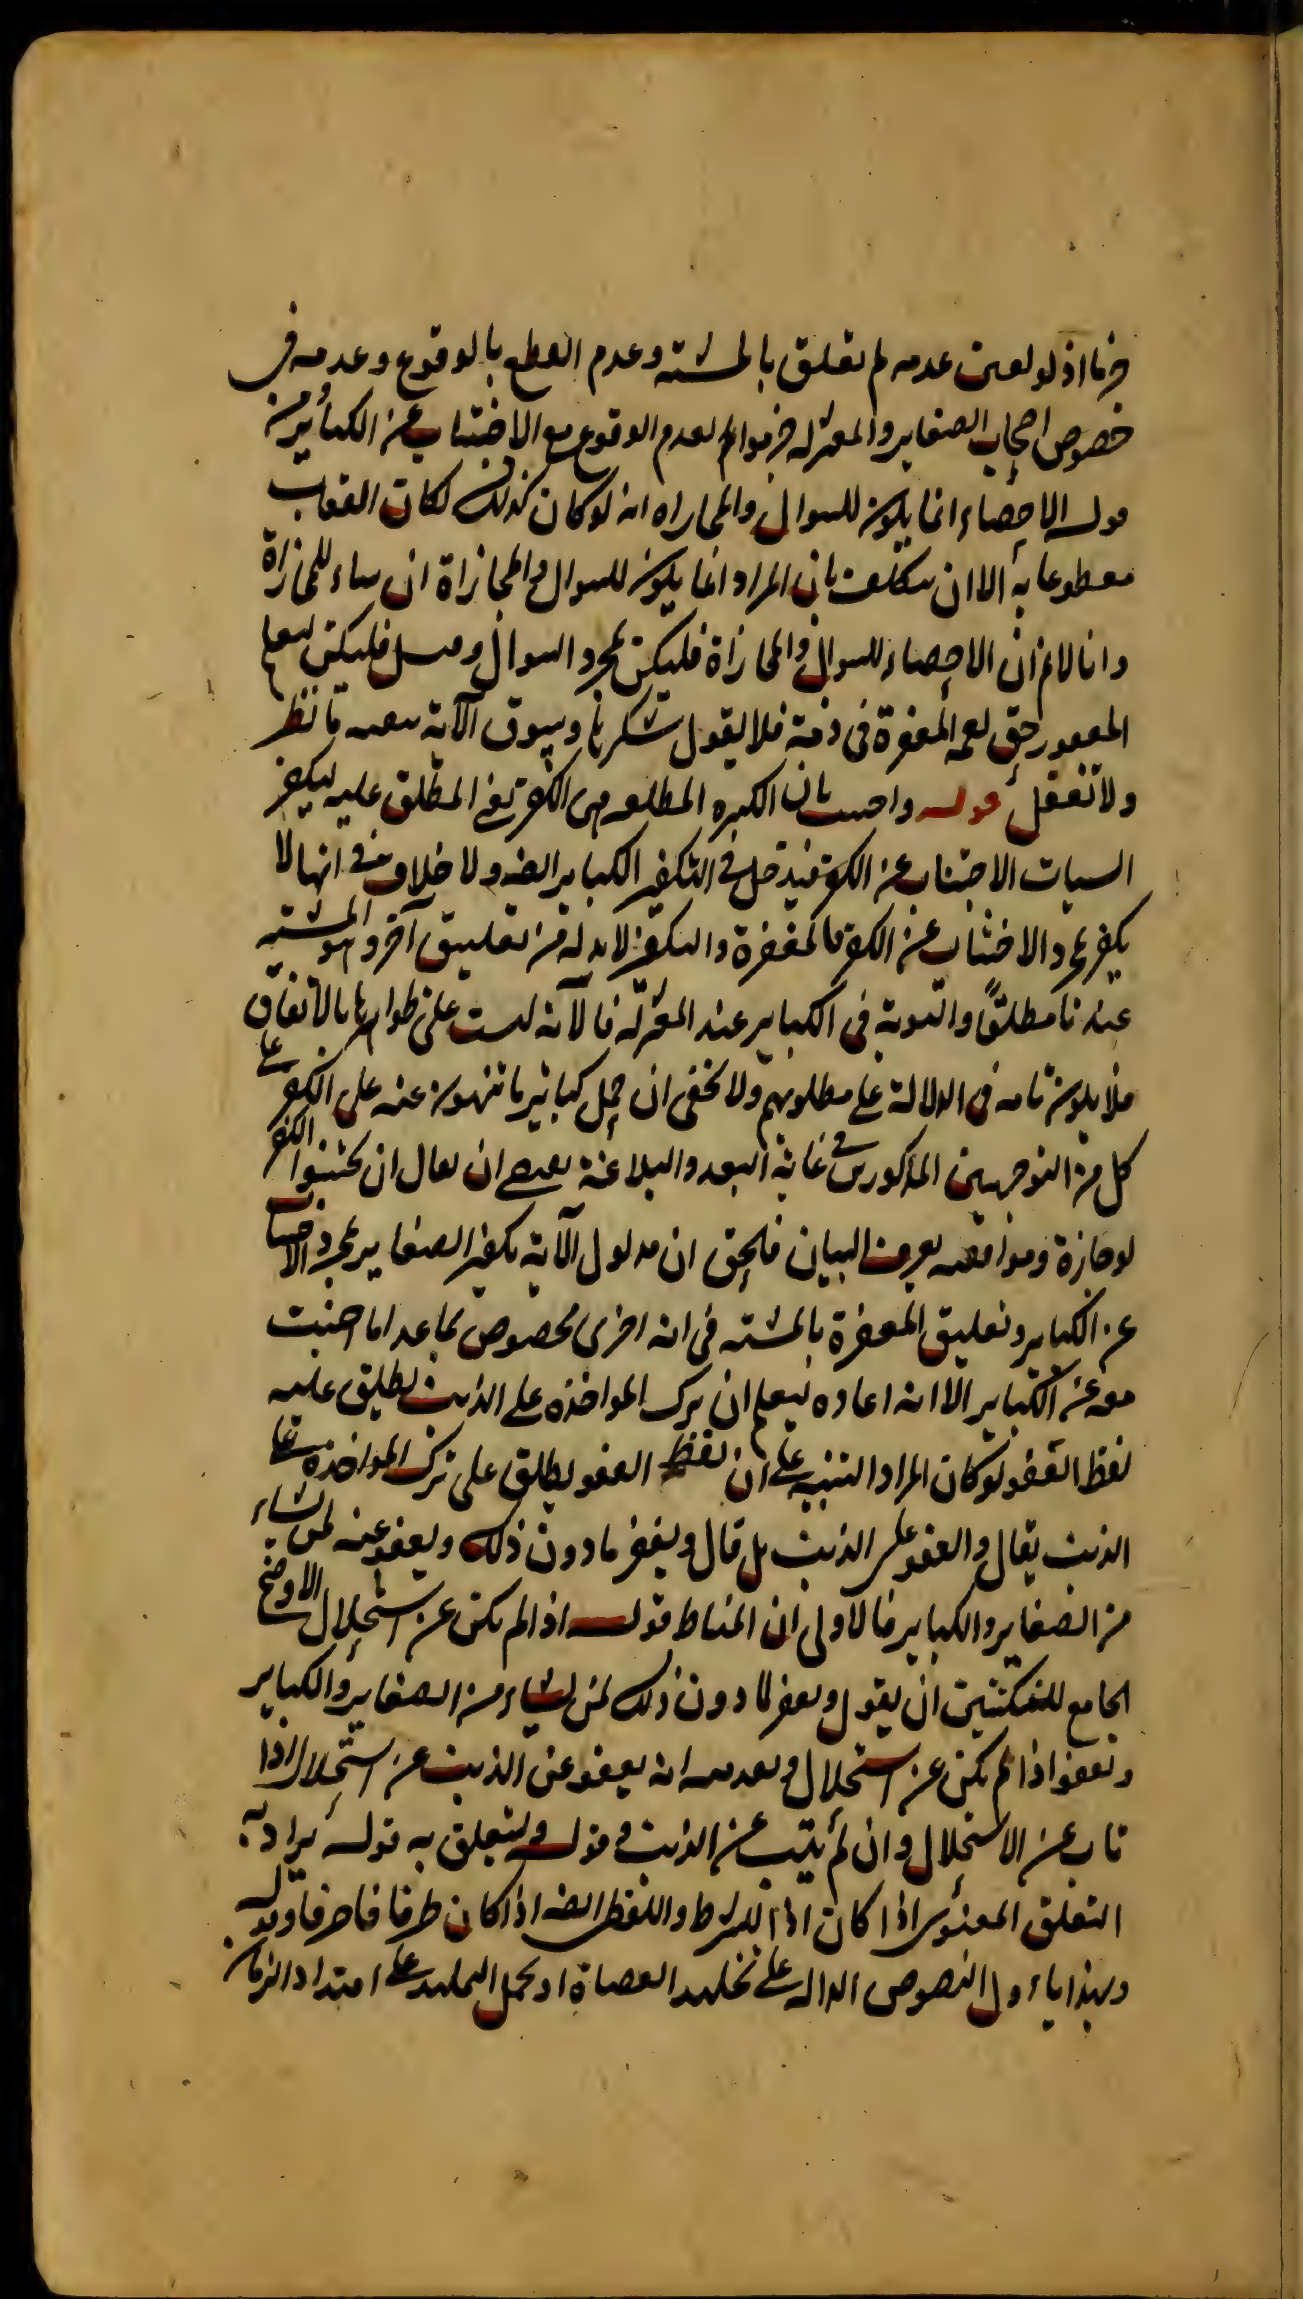 جزما اذ لو تعين عدمه لم تعلق بالمشية وعدم القطع بالوقوع وعدمه في
خصوص اصحاب الصغاير والمعتزلة جزموا لعدم الوقوع مع الاجتناب عن الكبائر من
قوله الاحصاء انما يكون للسوال والمجازاه انه لو كان كذلك لكان العقاب
مقطوعا به الا ان يتكلف بان المراد انما يكون للسوال والمجازاة ان شاء للمجازاة
وانا لا نم ان الاحصاء للسوال والمجازاة فليكن لمجرد السوال وقيل فليكن ليعلم
المغفور حق نعمة المغفرة في ذمته فلا يقول بشكرها وسوق الآية تنظر
ولا تغفل قوله واجيب بان الكبيره المطلقه هي الكفر يعني المطلق عليه ليكفر
السيات الاجتناب عن الكفر فيدخل في التكفير الكباير ايضه ولا خلاف في انها لا
يكفر بمجرد الاجتناب عن الكفر فالمغفرة والتكفير لابد له من تعليق آخر وهو المشية
عندنا مطلقًا والتوبة في الكباير عند المعتزلة فالآية ليست على ظواهرها بالاتفاق
فلا يكون تامه في الدلالة على مطلوبهم ولا يخفى ان حمل كبائر ما تنهون عنه على الكفر على
كل من التوجيهين المذكورين في غاية البعد والبلاغة يقتضي ان يقال ان تجتنبوا الكفر
لوجازة وموافقته لعرف البيان فالحق ان مدلول الآية تكفير الصغاير بمجرد الاجتناب
عن الكباير وتعليق المغفرة بالمشية في آية اخرى مخصوص بما عدا ما اجتنب
معه عن الكباير الا انه اعاده ليعلم ان ترك المواخذه على الذنب يطلق عليه
لفظ العفو لو كان المراد التنبيه على ان لفظ العفو يطلق على ترك المواخذه على
الذنب يقال والعفو على الذنب بل قال ويغفر ما دون ذلك ويعفو عنه لمن يشاء
من الصغاير والكباير فالاولى ان المناط قوله اذا لم تكن عن استحلال الاوضح
الجامع للنكتتين ان يقول ويغفر ما دون ذلك لمن يشاء من الصغاير والكباير
ويعفو اذا لم تكن عن استحلال وبعد فيه انه يعفو عن الذنب عن استحلال اذا
تاب عن الاستحلال وان لم يتب عن الذنب و قوله ويتعلق به قوله يراد به
التعلق المعنوي اذا كان اذا للشرط واللفظي ايضه اذا كان ظرفا فاحرفا وقوله
وبهذا ياءول النصوص الداله على تخليد العصاة او يحمل التخليد على امتداد الزمان